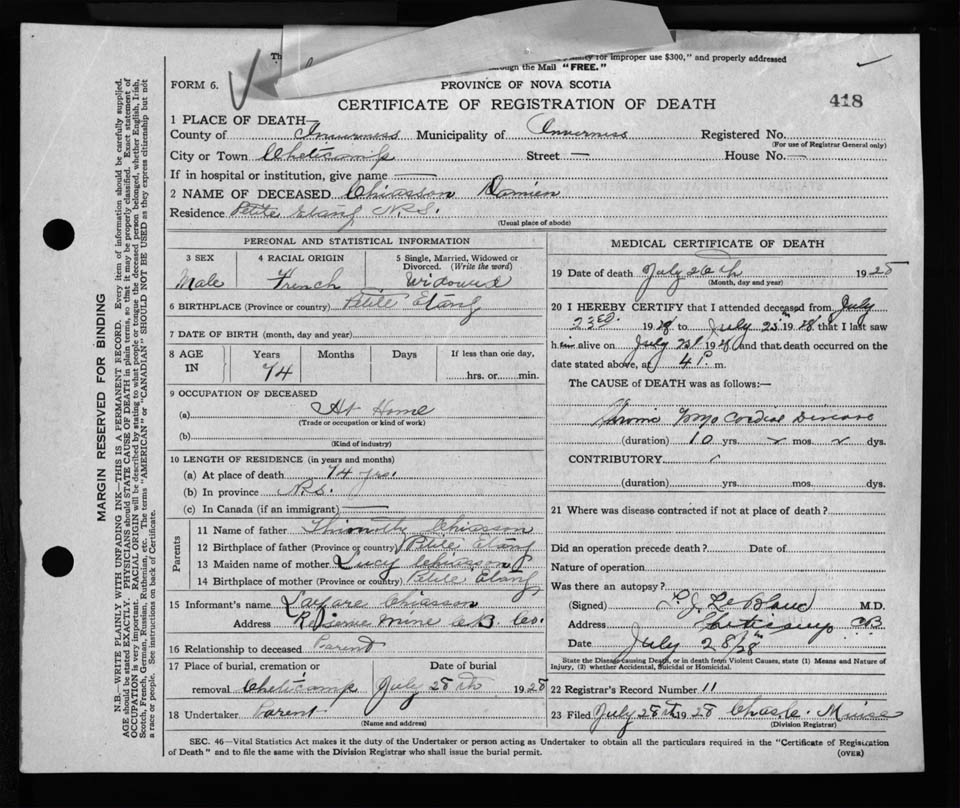 Th
for improper use $300," and properly addressed
through the Mail "FREE."
FORM 6.
PROVINCE OF NOVA SCOTIA
CERTIFICATE OF REGISTRATION OF DEATH
418
1 PLACE OF DEATH
County of Inverness Municipality of Inverness Registered No.
(For use of Registrar General only)
City or Town Cheticamp Street — House No. —
If in hospital or institution, give name —
2 NAME OF DECEASED Chiasson Damien
Residence Petite Etang N.S.
(Usual place of abode)
PERSONAL AND STATISTICAL INFORMATION
3 SEX 4 RACIAL ORIGIN 5 Single, Married, Widowed or
Divorced. (Write the word)
Male French Widowed
6 BIRTHPLACE (Province or country) Petite Etang
7 DATE OF BIRTH (month, day and year)
8 AGE IN Years Months Days If less than one day,
74 hrs. or min.
9 OCCUPATION OF DECEASED
(a) At Home
(Trade or occupation or kind of work)
(b)
(Kind of industry)
10 LENGTH OF RESIDENCE (in years and months)
(a) At place of death 74 yrs.
(b) In province N.S.
(c) In Canada (if an immigrant) —
Parents
11 Name of father Thimothy Chiasson
12 Birthplace of father (Province or country) Petite Etang
13 Maiden name of mother Lucy Chiasson
14 Birthplace of mother (Province or country) Petite Etang
15 Informant's name Laxfare Chiasson
Address Reserve Mine C.B. Co.
16 Relationship to deceased Parent
17 Place of burial, cremation or Date of burial
removal Cheticamp July 28th 1928
18 Undertaker Parent
(Name and address)
MEDICAL CERTIFICATE OF DEATH
19 Date of death July 26th 1928
(Month, day and year)
20 I HEREBY CERTIFY that I attended deceased from July
23rd 1928 to July 25th 1928 that I last saw
him alive on July 1928 and that death occurred on the
date stated above, at 4 P. m.
The CAUSE of DEATH was as follows:—
Chronic Myocardial Disease
(duration) 10 yrs. mos. dys.
CONTRIBUTORY
(duration) yrs. mos. dys.
21 Where was disease contracted if not at place of death?
Did an operation precede death? Date of
Nature of operation
Was there an autopsy?
(Signed) L. J. LeBlanc M.D.
Address Cheticamp CB
Date July 28/28
State the Disease causing Death, or in death from Violent Causes, state (1) Means and Nature of
Injury, (2) whether Accidental, Suicidal or Homicidal.
22 Registrar's Record Number 11
23 Filed July 28th 1928 Chas. C. Muise
(Division Registrar)
SEC. 46—Vital Statistics Act makes it the duty of the Undertaker or person acting as Undertaker to obtain all the particulars required in the "Certificate of Registration
of Death" and to file the same with the Division Registrar who shall issue the burial permit. (OVER)
MARGIN RESERVED FOR BINDING
N.B.—WRITE PLAINLY WITH UNFADING INK—THIS IS A PERMANENT RECORD. Every item of information should be carefully supplied.
AGE should be stated EXACTLY. PHYSICIANS should STATE CAUSE OF DEATH in plain terms, so that it may be properly classified. Exact statement of
OCCUPATION is very important. RACIAL ORIGIN will be described by stating to what people or tongue the deceased person belonged, whether English, Irish,
Scotch, French, German, Russian, Ruthenian, etc. The terms "AMERICAN" or "CANADIAN" SHOULD NOT BE USED as they express citizenship but not
a race or people. See instructions on back of Certificate.